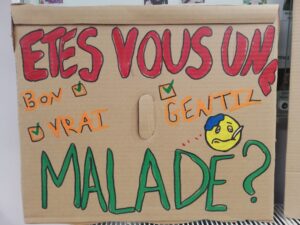 ETES VOUS UNE
BON
GENTIL
VRAI
MALADE?